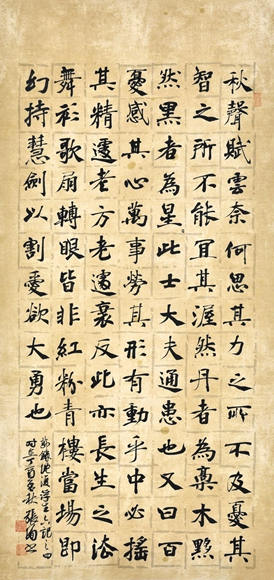 秋聲賦雲奈何思其力之所不及憂其
智之所不能宜其渥然丹者為槀木黟
然黑者為星此士大夫通患也又曰百
憂感其心萬事勞其形有動乎中必搖
其精遽老方老遽衰反此亦長生之法
舞衫歌扇轉眼皆非紅粉青樓當場即
幻持慧劍以割愛欲大勇也
丁酉金秋張